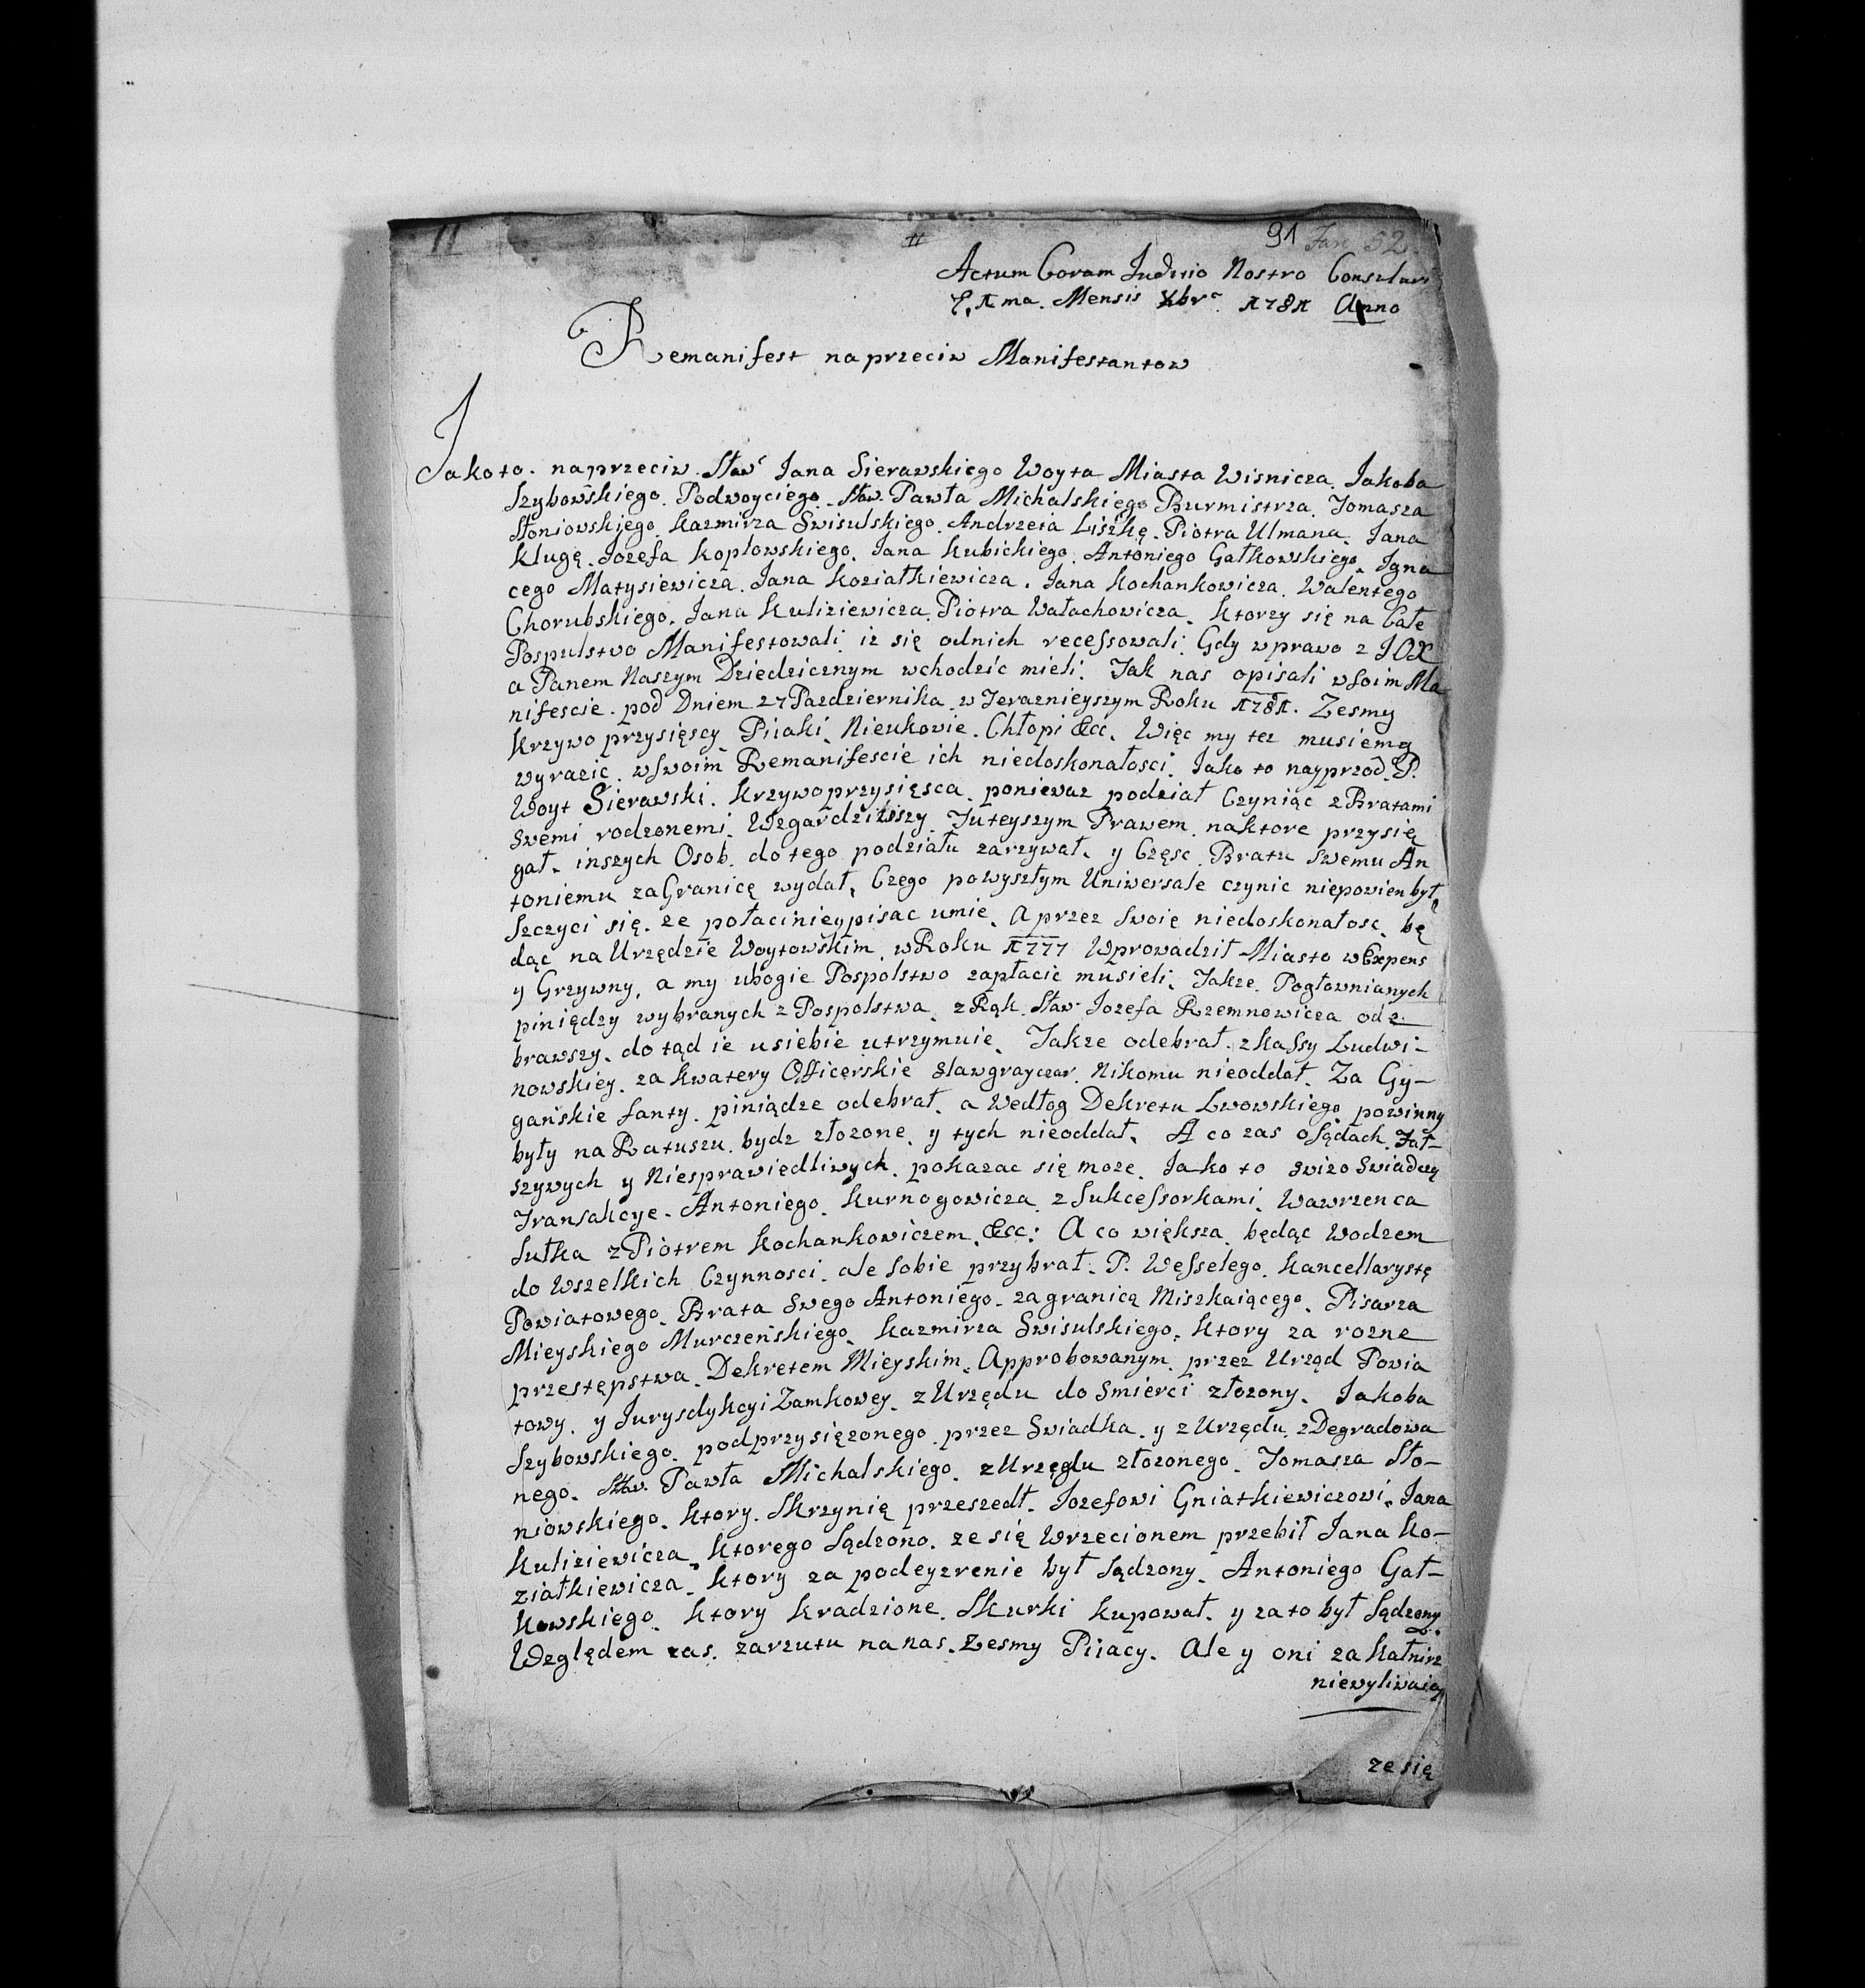 11
91 Fan 52.
Actum Coram Judicio Nostro Consulari
Mensis Xbr 1781 Anno
Remanifest naprzeciw Manifestantow
Jako to. naprzeciw. Sław Jana Sierawskiego Woyta Miasta Wisnicza. Jakoba
Szybowskiego. Podwoyciego. Sław. Pawła Michalskiego Burmistrza. Tomasza
Słoniowskiego. Kazmirza Swisulskiego. Andrzeia Liszkę. Piotra Ulmana. Jana
Klugę. Jozefa Koplowskiego. Jana Kubickiego. Antoniego Gałkowskiego. Igna
cego Matysiewicza. Jana Koziałkiewicza. Jana Kochankowicza. Walentego
Chorubskiego. Jana Kuliziewicza. Piotra Wałachowicza. Ktorzy się na Całe
Pospulstwo Manifestowali. iz się odnich recessowali. Gdy wprawo z JOX
a Panem Naszym Dziedzicznym wchodzić mieli. Jak nas opisali wSoim Ma
nifescie. pod Dniem 27 Pazdziernika. w Terazniejszym Roku 1781. Zesmy
Krzywo przysięscy. Piiaki. Nieukowie. Chłopi &cc. Więc my tez musiemy
wyrazić. wSwoim Remanifescie ich niedoskonałosci. Jako to nayprzod. P.
Woyt Sierawski. Krzywoprzysięsca. poniewaz podział Czyniąc z Bratami
Swemi rodzonemi. Wzgardziwszy. Tuteyszym Prawem. naktore przysię
gał. inszych Osob. do tego podziału zarzywał. y Częsc. Bratu Swemu An
toniemu zaGranicę wydał. Czego powyszłym Uniwersale czynic niepowien był.
Szczyci się. ze połaciniey pisac umie. A przez Swoię niedoskonałosc. bę
dąc na Urzędzie Woytowskim. wRoku 1777 Wprowadził Miasto wExpens
y Grzywny. a my ubogie Pospolstwo zapłacić musieli. Takze. Pogłownianych
piniędzy wybranych z Pospolstwa. z Rąk. Sław Jozefa Rzemnowicza ode
brawszy. do tąd ie usiebie utrzymuie. Takze odebrał. z Kassy Ludwi-
nowskiey. za Kwatery Officerskie Nikomu nieoddał. Za Cy-
gańskie fanty. piniądze odebrał. a Wedłog Dekretu Lwowskiego powinny
były na Ratuszu. bydz złozone. y tych nieoddał. A co zas oSądach. Fał-
szywych y Niesprawiedliwych. pokazac się moze. Jako to swizo Swiadczą
Transakcye. Antoniego. Kurnogowicza. z Sukcessorkami. Wawrzenca
Sułka z Piotrem Kochankowiczem. &cc: A co większa. będąc Wodzem
do Wszelkich Czynnosci. ale Sobie przybrał. P. Wesselego. Kancellarystę
Powiatowego. Brata Swego Antoniego. zagranicą Miszkaiącego. Pisarza
Mieyskiego Murczeńskiego. Kazmirza Swisulskiego. Ktory za rozne
przestępstwa. Dekretem Mieyskim. Approbowanym. przez Urząd Powia
towy. y Jurysdykcyi Zamkowey. z Urzędu do Smierci złozony. Jakoba
Szybowskiego. podprzysięzonego. przez Swiadka. y z Urzędu. zDegradowa
nego. Sław. Pawła Michalskiego. z Urzędu złozonego. Tomasza Sło-
niowskiego. Ktory. Skrzynię przeszedł. Jozefowi Gniatkiewiczowi. Jana
Kuliziewicza. Ktorego Sądzono. ze się Wrzecionem przebił Jana Ko-
ziałkiewicza. Ktory za podeyzrenie był Sądzony. Antoniego Gał-
kowskiego. Ktory Kradzione. Skurki kupował. y zato był Sądzony.
Względem zas. zarzutu na nas. Zesmy Piiacy. Ale y oni za Kałnirz
niewyliwaią
ze się